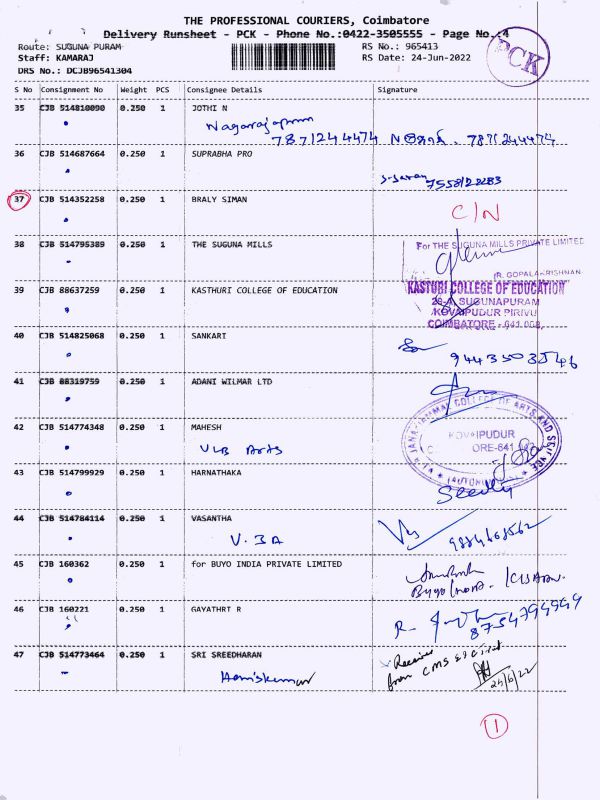 THE PROFESSIONAL COURIERS, Coimbatore
Delivery Runsheet - PCK - Phone No.:0422-3505555 - Page No.:4
Route: SUGUNA PURAM
RS No.: 965413
Staff: KAMARAJ
RS Date: 24-Jun-2022
DRS No.: DCJB96541304
PCK
S No Consignment No Weight PCS Consignee Details Signature
35 CJB 514810090 0.250 1 JOTHI N
Nagarajapuram
7871244474 7871244474
36 CJB 514687664 0.250 1 SUPRABHA PRO
37 CJB 514352258 0.250 1 BRALY SIMAN
C/N
38 CJB 514795389 0.250 1 THE SUGUNA MILLS
For THE SUGUNA MILLS PRIVATE LIMITED
(R. GOPALAKRISHNAN
39 CJB 88637259 0.250 1 KASTHURI COLLEGE OF EDUCATION
KASTURI COLLEGE OF EDUCATION
28-A, SUGUNAPURAM
KOVAIPUDUR PIRIVU
COIMBATORE - 641 008
40 CJB 514825068 0.250 1 SANKARI
9443503546
41 CJB 88319759 0.250 1 ADANI WILMAR LTD
42 CJB 514774348 0.250 1 MAHESH
VLB Arts
JANAKIAMMAL COLLEGE OF ARTS AND SCIENCE
KOVAIPUDUR
ORE-641
(AUTONOMOUS)
43 CJB 514799929 0.250 1 HARNATHAKA
44 CJB 514784114 0.250 1 VASANTHA
V. 3A
45 CJB 160362 0.250 1 for BUYO INDIA PRIVATE LIMITED
46 CJB 160221 0.250 1 GAYATHRT R
8754794949
47 CJB 514773464 0.250 1 SRI SREEDHARAN
Received
from CMS
24/6/22
1